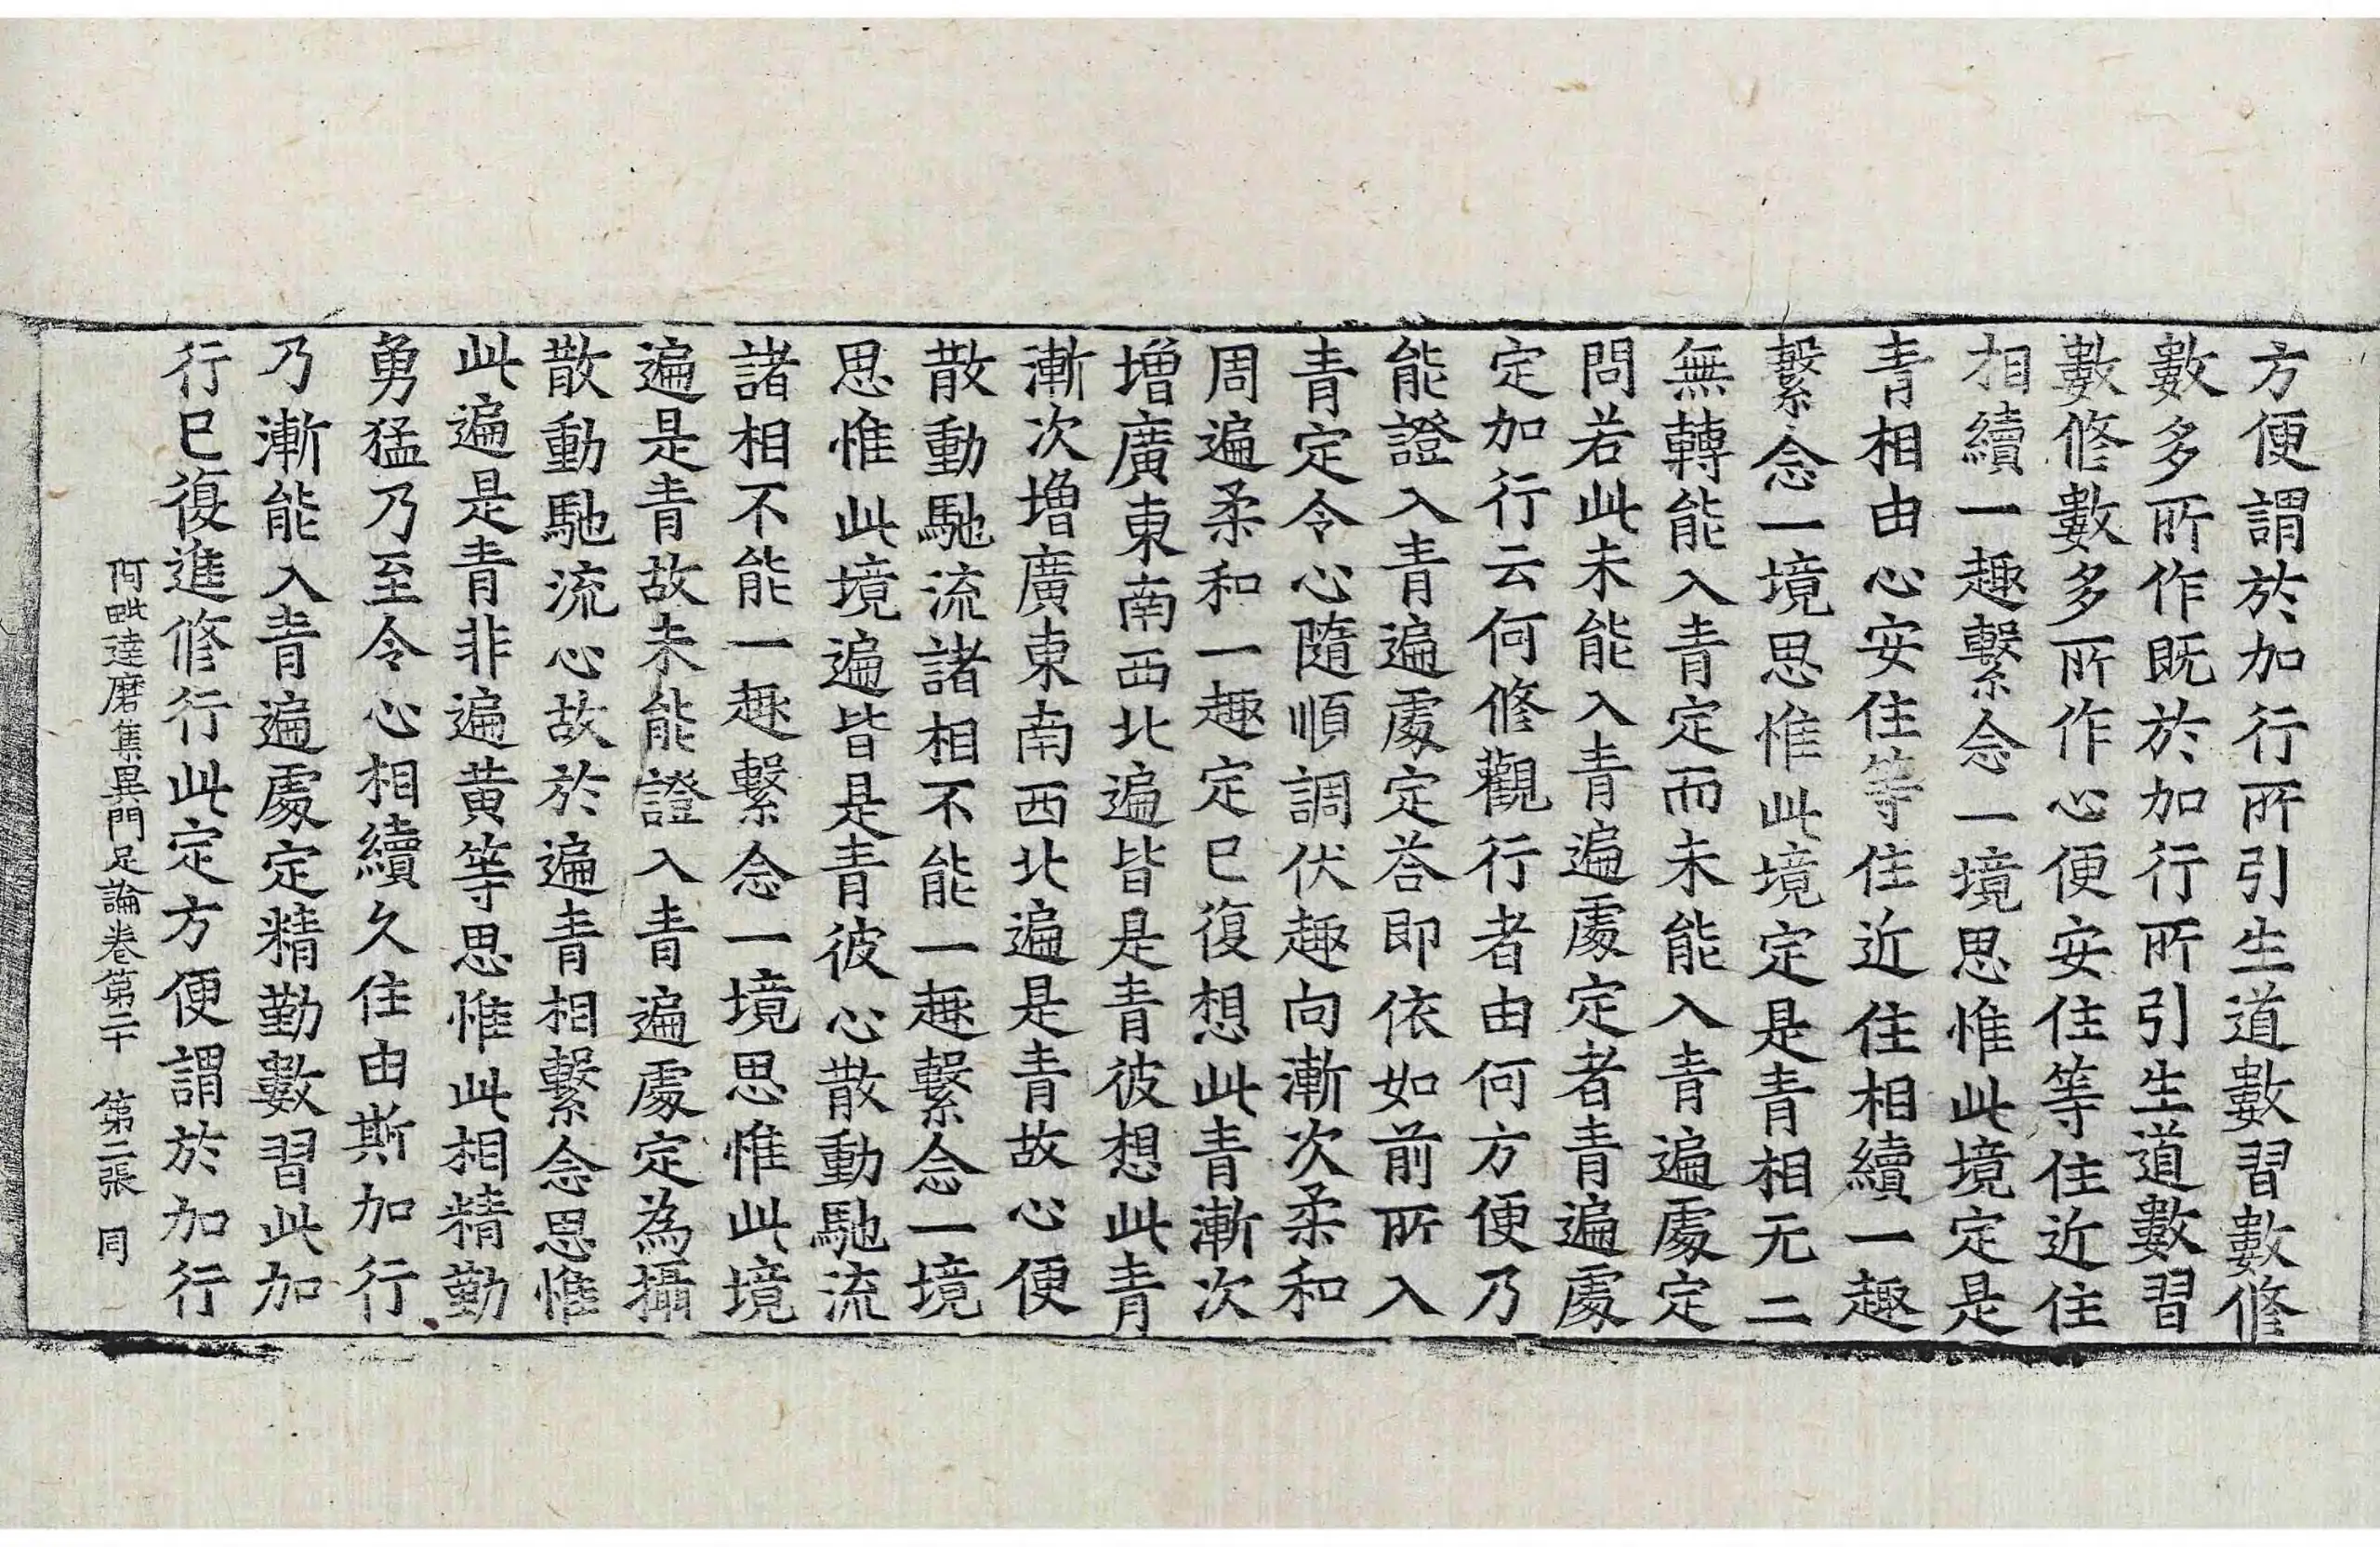 方便謂於加行所引生道數習數修
數多所作既於加行所引生道數習
數修數多所作心便安住等住近住
相續一趣繫念一境思惟此境定是
青相由心安住等住近住相續一趣
繫念一境思惟此境定是青相无二
無轉能入青定而未能入青遍處定
問若此未能入青遍處定者青遍處
定加行云何修觀行者由何方便乃
能證入青遍處定荅即依如前所入
青定令心隨順調伏趣向漸次柔和
周遍柔和一趣定已復想此青漸次
增廣東南西北遍皆是青彼想此青
漸次增廣東南西北遍是青故心便
散動馳流諸相不能一趣繫念一境
思惟此境遍皆是青彼心散動馳流
諸相不能一趣繫念一境思惟此境
遍是青故未能證入青遍處定為攝
散動馳流心故於遍青相繫念思惟
此遍是青非遍黃等思惟此相精勤
勇猛乃至令心相續久住由斯加行
乃漸能入青遍處定精勤數習此加
行已復進修行此定方便謂於加行
阿毗達磨集異門足論卷第二十 第二張 同